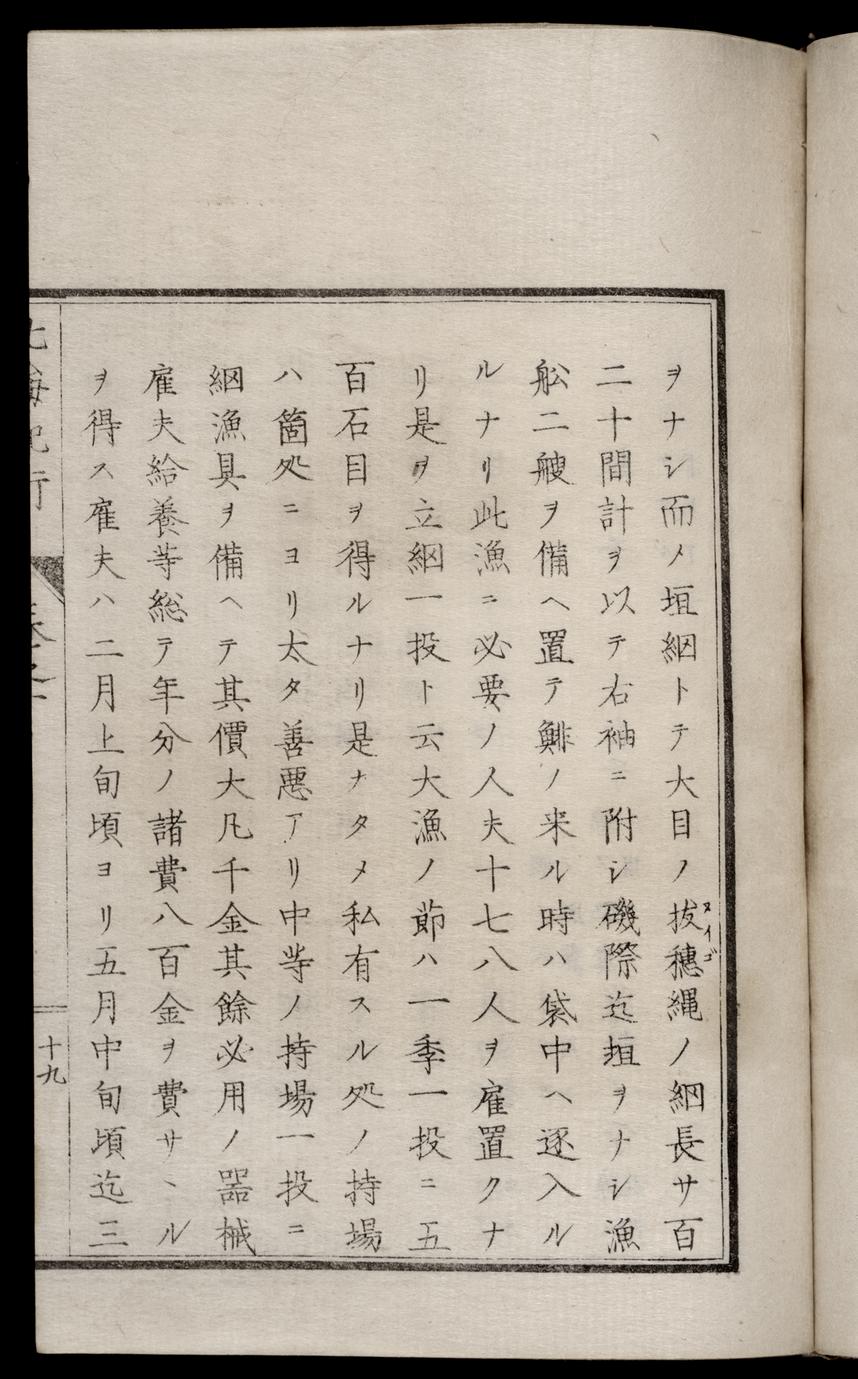 ヲナシ而メ垣綱トテ大目ノ抜穗縄ノ綱長サ百
ヌイゴ
二十間計ヲ以テ右袖ニ附シ磯際迄垣ヲナシ漁
舩二艘ヲ備ヘ置テ鯡ノ来ル時ハ袋中ヘ逐入ル
ルナリ此漁ニ必要ノ人夫十七八人ヲ雇置クナ
リ是ヲ立綱一投ト云大漁ノ節ハ一季一投ニ五
百石目ヲ得ルナリ是ナタメ私有スル処ノ持場
ハ箇処ニヨリ太タ善悪アリ中等ノ持場一投ニ
綱漁具ヲ備ヘテ其價大凡千金其餘必用ノ器械
雇夫給養等総テ年分ノ諸費八百金ヲ費サヽル
ヲ得ス雇夫ハ二月上旬頃ヨリ五月中旬頃迄三
北海紀行
十九